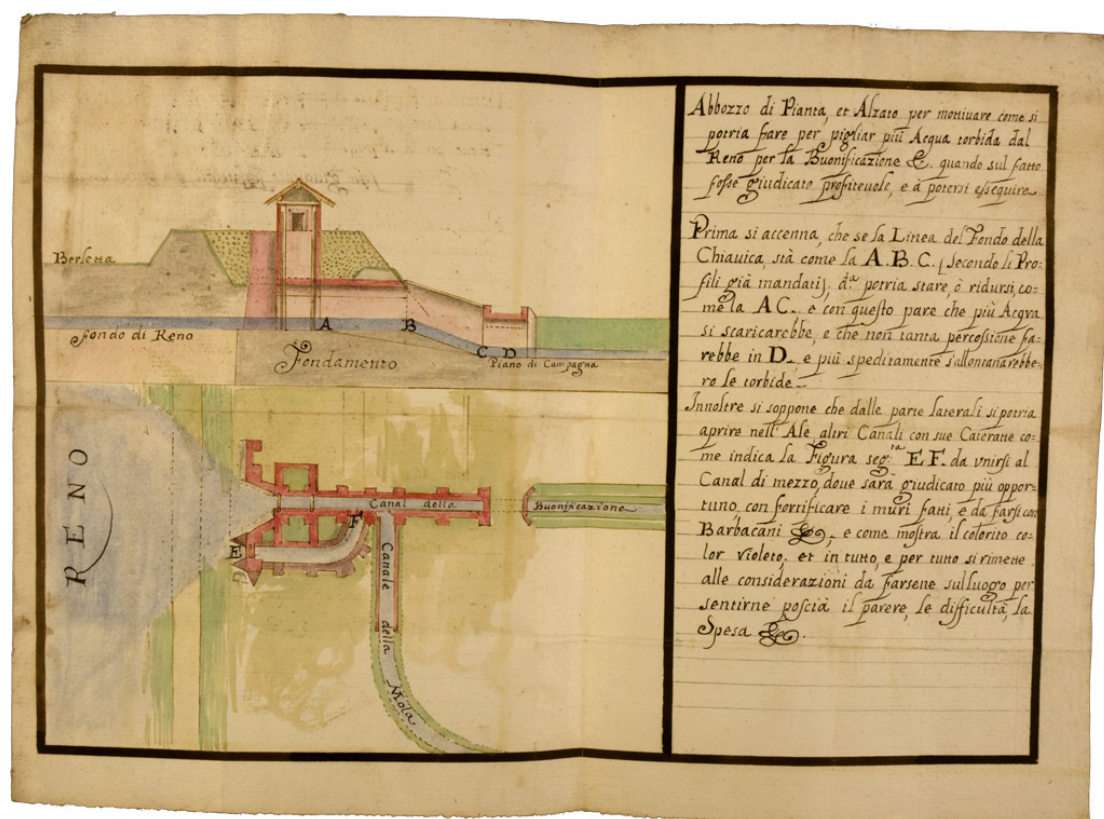 Berletta
fondo di Reno
A
B
Fondamento
C D
Piano di Campagna
RENO
Canal della
Buonificazione
F
E
Canale della Mola
Abbozzo di Pianta, et Alzato per mottiuare come si
potria fare per pigliar più Acqua torbida dal
Reno per la Buonificazione &. quando sul fatto
fosse giudicato profiteuole, e a potersi essequire
Prima si accenna, che se la Linea del Fondo della
Chiauica, stà come la A.B.C. [secondo li Pro=
fili già mandati]. d.ª potria stare, ò ridursi, co=
me la AC. e con questo pare che più Acqua
si scaricarebbe, e che non tanta percossione fa=
rebbe in D. e più speditamente s'allontanarebbe=
ro le torbide.
Innoltre si soppone che dalle parte laterali si potria
aprire nell'Ale altri Canali con sue Cateratte co=
me indica la Figura seg.ta EF. da vnirsi al
Canal di mezzo, doue sarà giudicato più oppor=
tuno, con fortificare i muri fatti, e da farsi con
Barbacani &, e come mostra il colorito co=
lor violeto; et in tutto, e per tutto si rimette
alle considerazioni da farsene sul luogo per
sentirne poscià il parere, le difficultà, la
Spesa &.